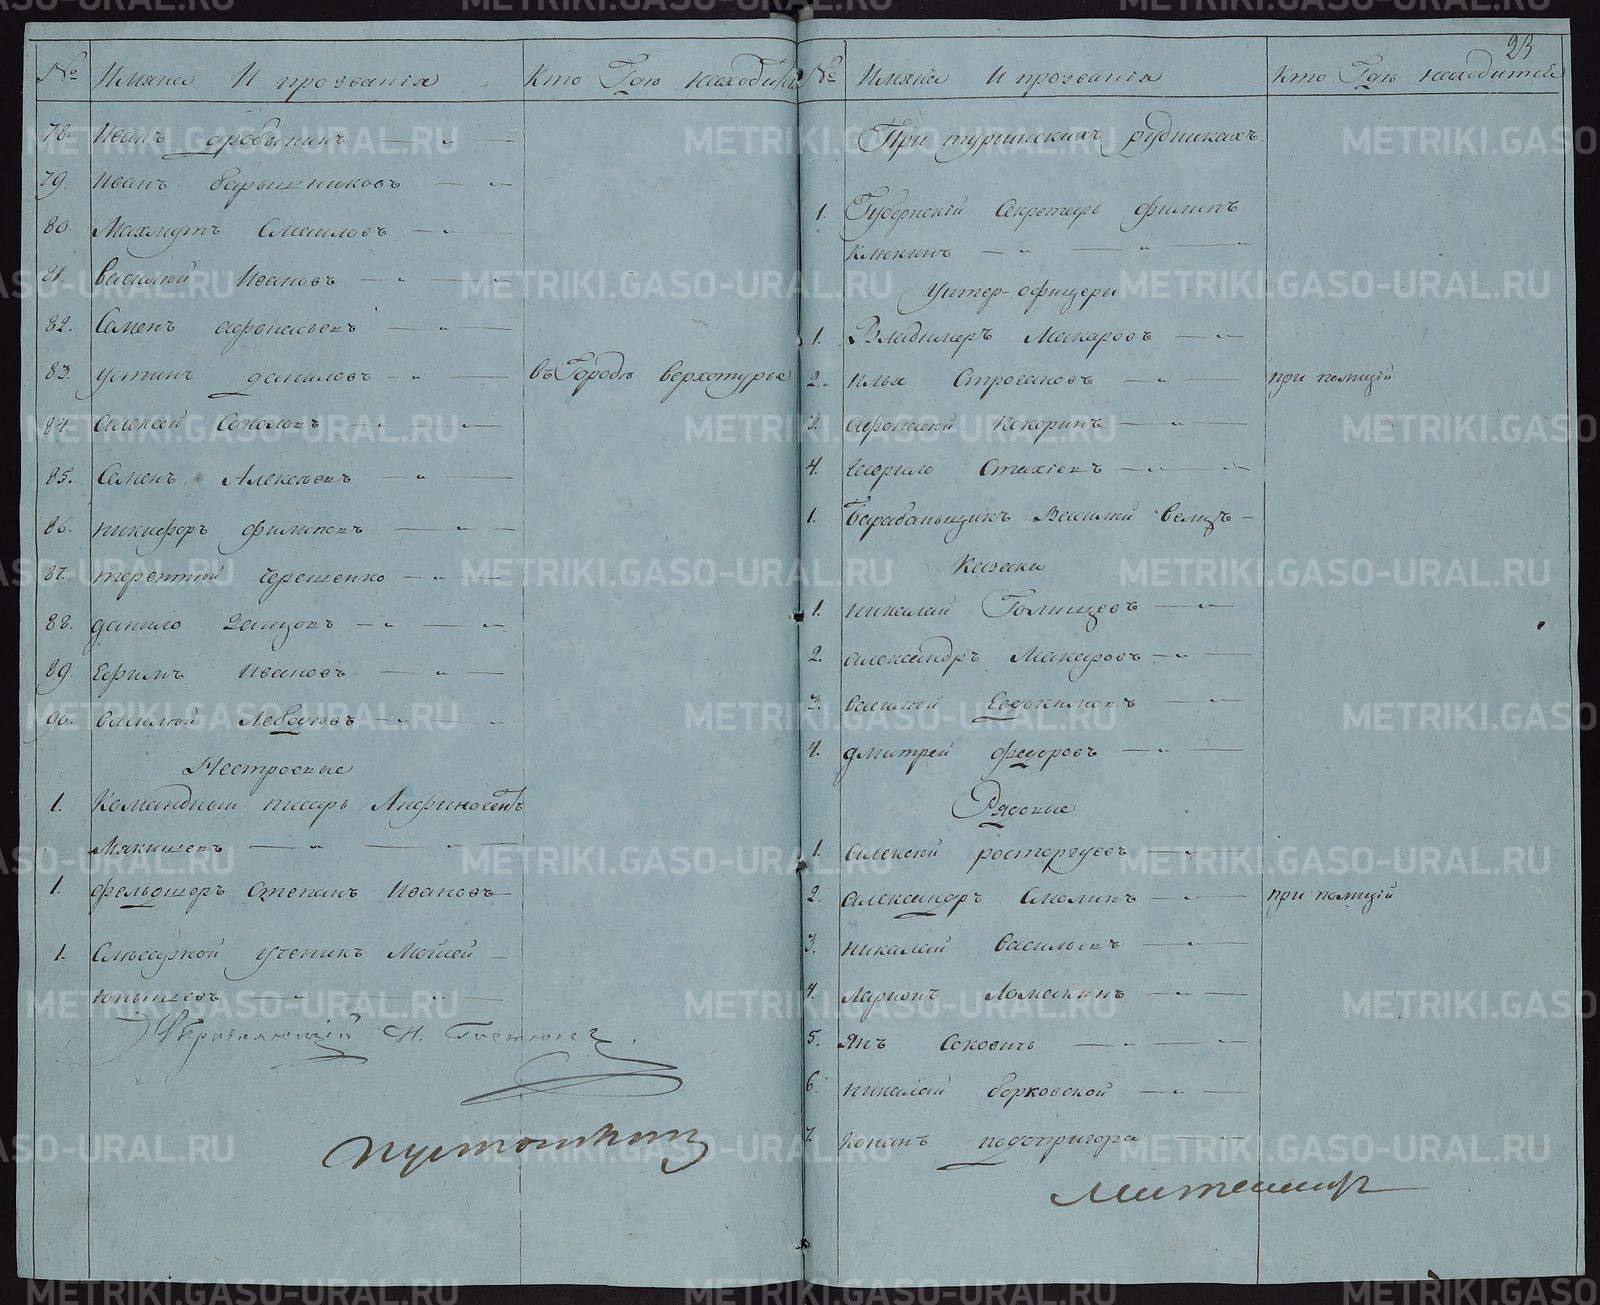 № Имяна И прозвания Кто Где находится
78. Иванъ дробынинъ
79. Иванъ барышниковъ
80. Махмутъ Смаиловъ
81. василей Ивановъ
82. Семенъ афонасьевъ
83. устинъ даниловъ въ Городе верхотурье
84. Алексей Соколовъ
85. Семенъ Алексеевъ
86. никифоръ филиповъ
87. терентей Черешенко
88. данило Заицовъ
89. Ефимъ Ивановъ
90. василей
Нестроевые
1. Командный писарь Анфиногенъ
Мякишевъ
1. фельдшеръ Степанъ Ивановъ
1. Слесарной ученикъ Мойсей
Юнышевъ
Управляющий Н.
23
№ Имяна И прозвания Кто Где находится
При турьинскихъ рудникахъ.
1. Губернский Секретарь филипъ
Клюкинъ
Унтер-офицеры
1. Владимеръ Макаровъ
2. илья Строгановъ при полиций
3. афонасей Кокоринъ
4. Гаврило Стахиевъ
1. Барабаньщикъ Василий
Казаки
1. николай Голицовъ
2. александръ Макаровъ
3. василий Евдокимовъ
4. дмитрей федоровъ
Рядовые
1. алексей расторгуевъ
2. александръ Смолинъ при полиций
3. николай васильевъ
4. Ларионъ Ломакинъ
5. Янъ Соковичь
6. николай борковской
7. Конанъ подопригора
METRIKI.GASO-URAL.RU